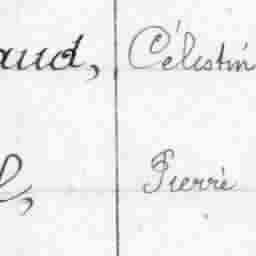 aud, Célestin
l, Pierre